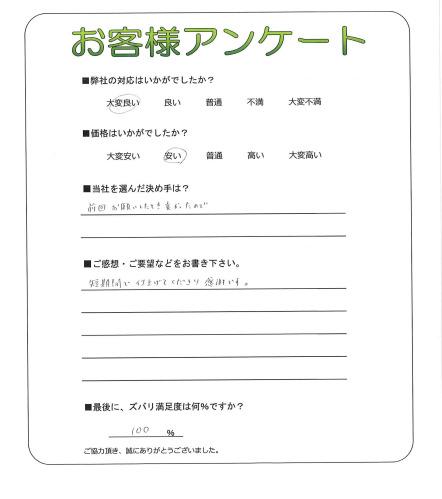 お客様アンケート
■弊社の対応はいかがでしたか？
大変良い 良い 普通 不満 大変不満
■価格はいかがでしたか？
大変安い 安い 普通 高い 大変高い
■当社を選んだ決め手は？
前回お願いしたとき良かったので
■ご感想・ご要望などをお書き下さい。
短期間で仕上げてくださり感謝です。
■最後に、ズバリ満足度は何%ですか？
100 %
ご協力頂き、誠にありがとうございました。